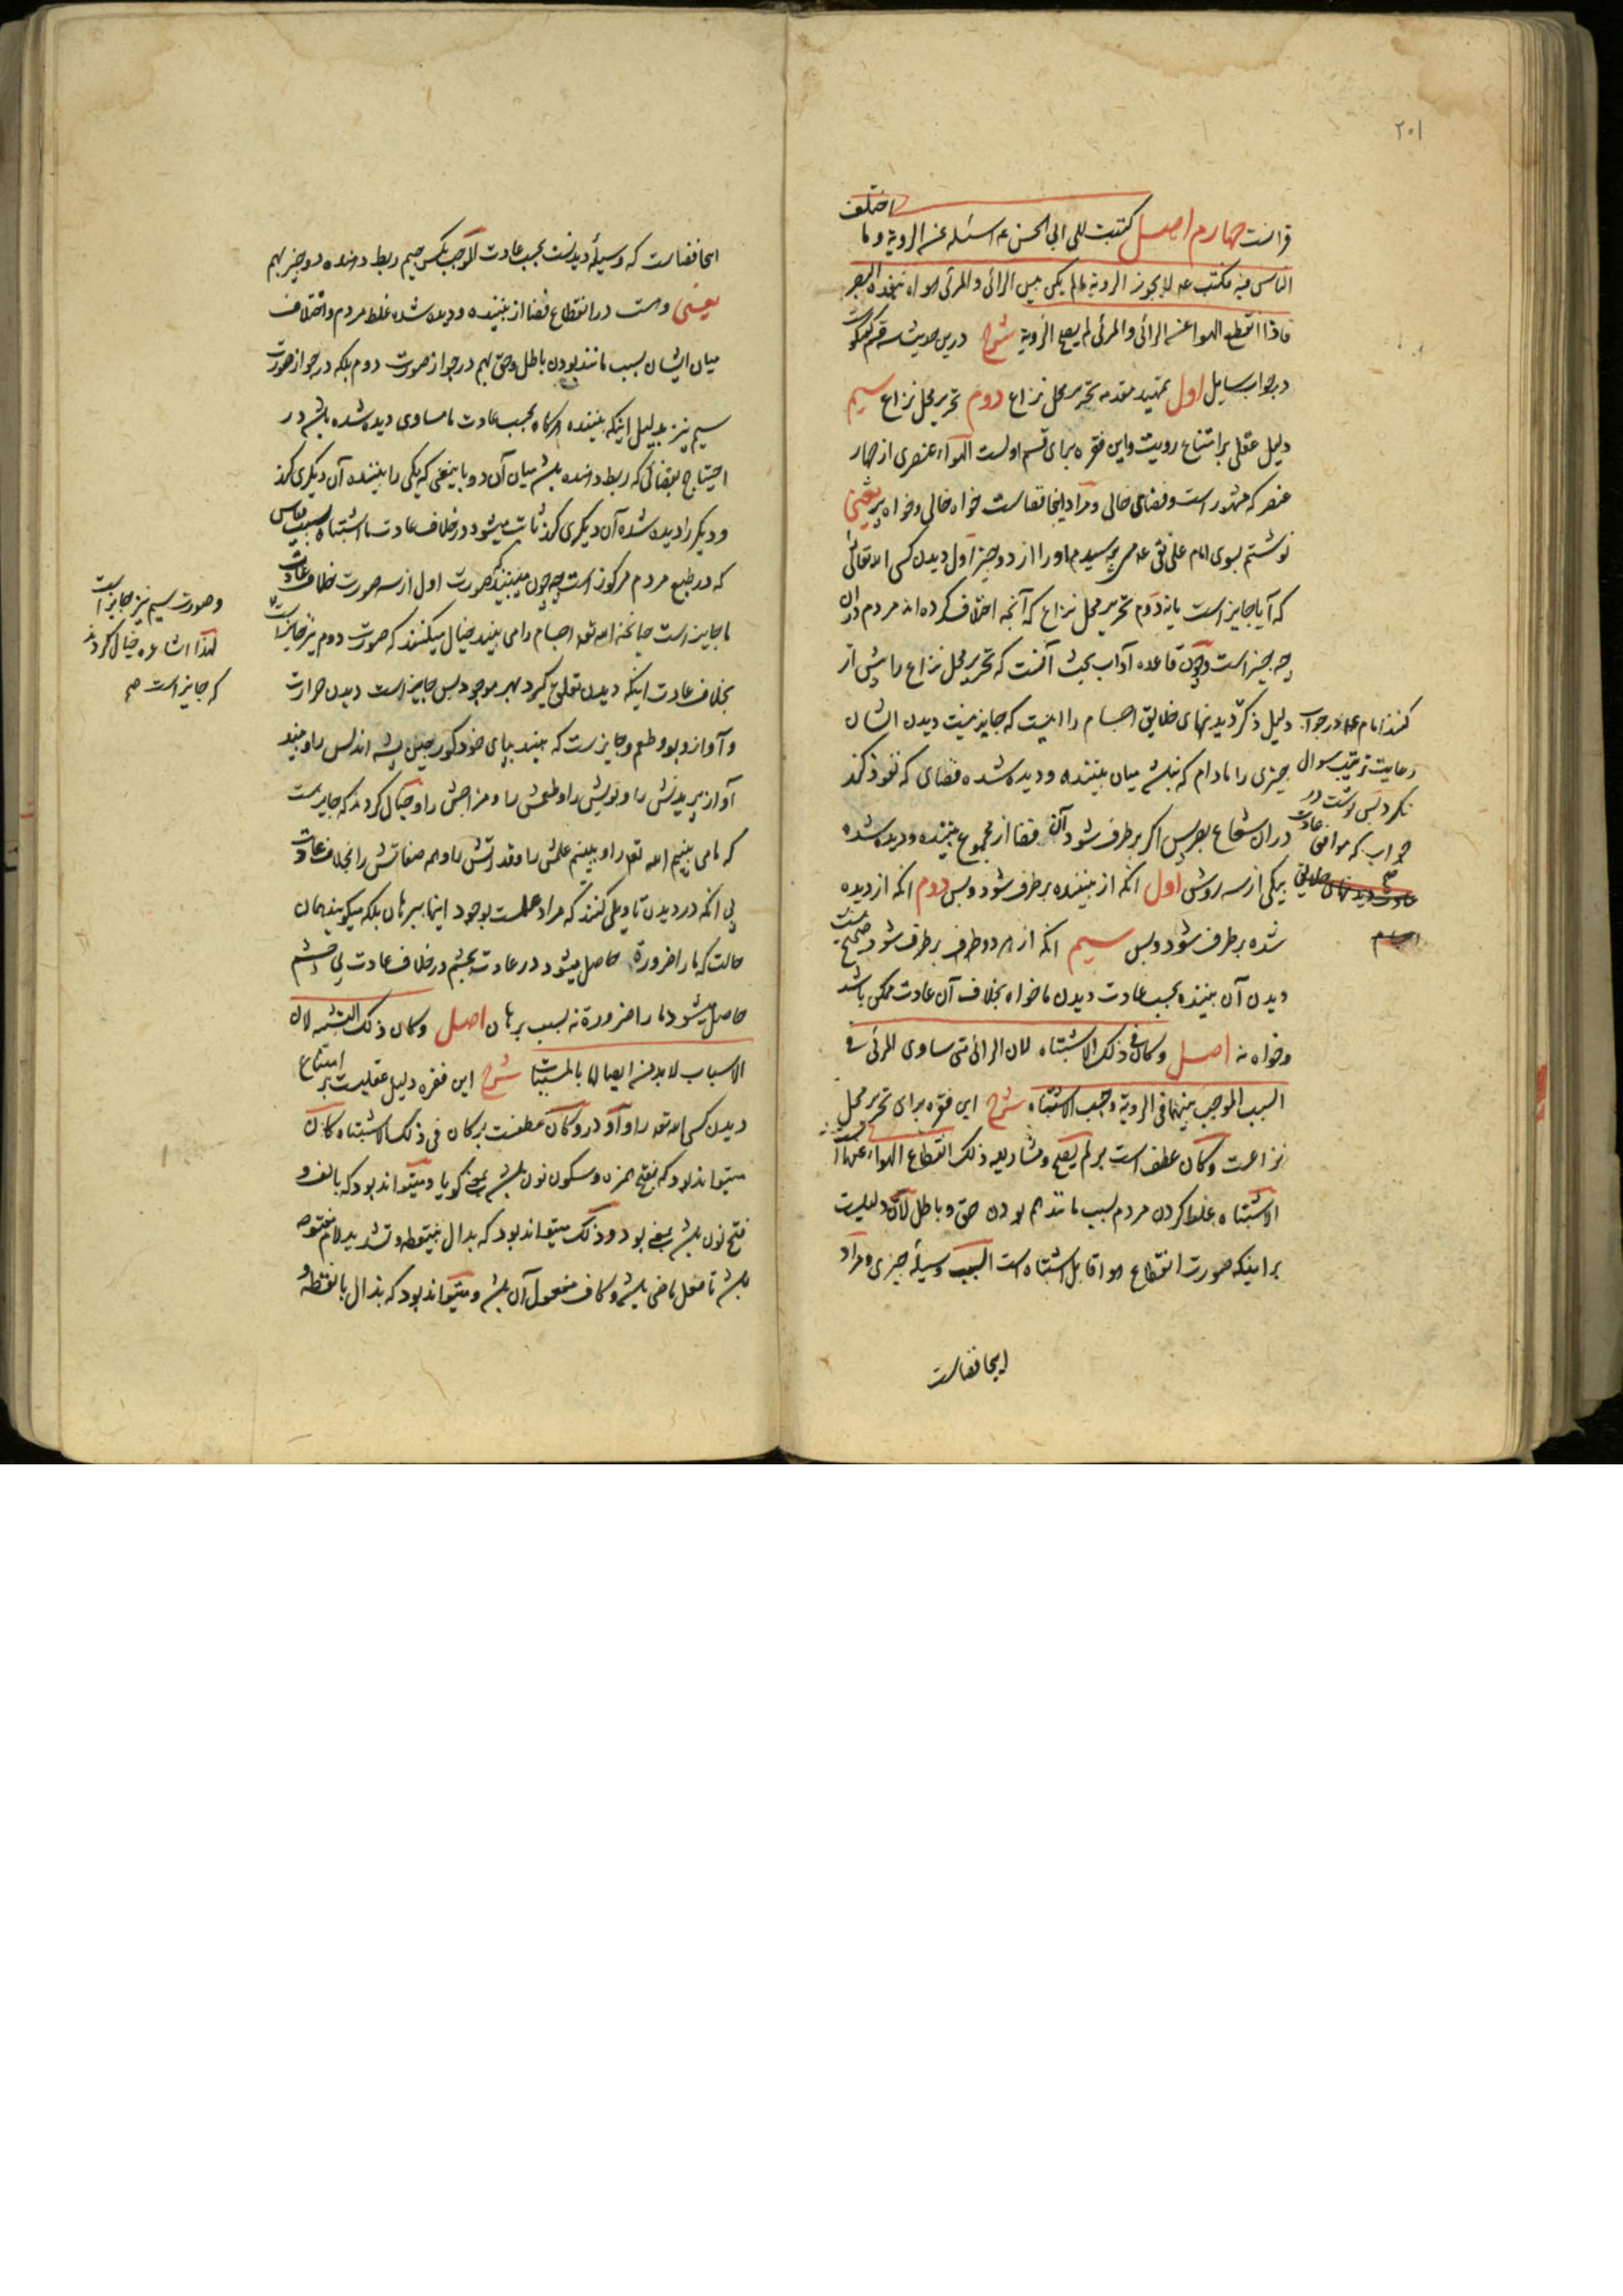 ۲۰۱
اختلف
قرانست چهارم اصل کتبت الی ابی الحسن ع اسئله عن الرویة و ما
الناس فیه فکتب ع لا یجوز الرویة مالم یکن بین الرائی و المرئی هواء ینفذه البصر
فاذا انقطع الهواء عن الرائی و المرئی لم یصح الرؤیة شرح درین حدیث سه قسم
در جواب سایل اول تمهید مقدمه تحریر محل نزاع دوم تحریر محل نزاع سیم
دلیل عقلی بر امتناع رویت و این فقره برای قسم اولست الهواء عنصری از چهار
عنصر که مشهور است و فضای خالی و مراد اینجا فضاست خواه خالی و خواه پر یعنی
نوشتم بسوی امام علی نقی ع می پرسیدم او را از دو چیز اول دیدن کسی الله تعالی را
که آیا جایز است یا نه دوم تحریر محل نزاع که آنچه اختلاف کرده اند مردم دران
چه چیز است و چون قاعده آداب بحث آنست که تحریر محل نزاع را پیش از
دلیل ذکر دیدنهای خلایق اجسام را اینست که جایز نیست دیدن ایشان
چیزی را مادام که نباشد میان بیننده و دیده شده فضای که نفوذ کند
دران شعاع بصر پس اگر برطرف شود آن فضا از مجموع بیننده و دیده شده
بیکی از سه روش اول انکه از بیننده برطرف شود و بس دوم انکه از دیده
شده برطرف شود و بس سیم انکه از هر دو طرف برطرف شود صحیح نیست
دیدن آن بیننده بحسب عادت دیدن ما خواه بخلاف آن عادت ممکن باشد
و خواه نه اصل و کان فی ذلک الاشتباه لان الرائی متی ساوی المرئی فی
السبب الموجب بینهما فی الرویة وجب الاشتباه شرح این فقره برای تحریر محل
نزاعست و کان عطف است بر لم یصح و مشار الیه ذلک انقطاع الهواء عنهما است
الاشتباه غلط کردن مردم بسبب مانند هم بودن حق و باطل لان دلیلیست
بر اینکه صورت انقطاع هوا قابل اشتباه است السبب وسیلهٔ چیزی و مراد
اینجا فضاست
کنند امام ع در جواب
رعایت ترتیب سوال
نکرد پس نوشت در
جواب که موافق عادت
صح
عادت دیدنهای خلایق
اجسام
اینجا فضاست که وسیلهٔ دیدنست بحسب عادت الموجب بکسر جیم ربط دهنده دو چیز بهم
یعنی و هست در انقطاع فضا از بیننده و دیده شده غلط مردم و اختلاف
میان ایشان بسبب مانند بودن باطل و حق بهم در جواز صورت دوم بلکه در جواز صورت
سیم نیز بدلیل اینکه بیننده هرگاه بحسب عادت ما مساوی دیده شده باشد در
احتیاج بفضائی که ربط دهنده باشد میان آن دو باینمعنی که یکی را بیننده آن دیگری کند
و دیگر را دیده شده آن دیگری کند ثابت میشود در خلاف عادت ما اشتباه بسبب قیاس
که در طبع مردم مرکوز است چه چون میبینند که صورت اول از سه صورت خلاف عادت
ما جایز است چنانچه الله تعه اجسام را می بیند خیال میکنند که صورت دوم نیز جایز است
بخلاف عادت اینکه دیدن تعلق گیرد بهر موجود پس جایز است دیدن حرارت
و آواز و بو و طعم و جایز ست که بیند بپای خود کور چین پشه اندلس را و بیند
آواز پریدنش را و بویش را و طعمش را و مزاجش را و خیال کردند که جایز ست
که ما می بینیم الله تعه را و ببینم علمش را و قدرتش را و همه صفاتش را بخلاف عادت
بی انکه در دیدن تاویلی کنند که مراد علمست بوجود اینها ببرهان بلکه میکویند همان
حالت که ما را ضرورة حاصل میشود در عادت بچشم در خلاف عادت بی چشم
حاصل میشود ما را ضرورة نه بسبب برهان اصل و کان ذلک التشبیه لان
الاسباب لابد من ایصالها بالمسببات شرح این فقره دلیل عقلیست بر امتناع
دیدن کسی الله تعه را واو در و کان عطفست بر کان فی ذلک الاشتباه کان
میتواند بود که بفتح همزه و سکون نون باشد بمعنی گویا و میتواند بود که بالف و
فتح نون باشد بمعنی بود و ذلک میتواند بود که بدال بینقطه و تشدید لام مفتوحه
باشد تا فعل ماضی باشد و کاف مفعول آن باشد و میتواند بود که بذال با نقطه و
و صورت سیم نیز جایز است
لهذا اشاعره خیال کردند
که جایز است صح